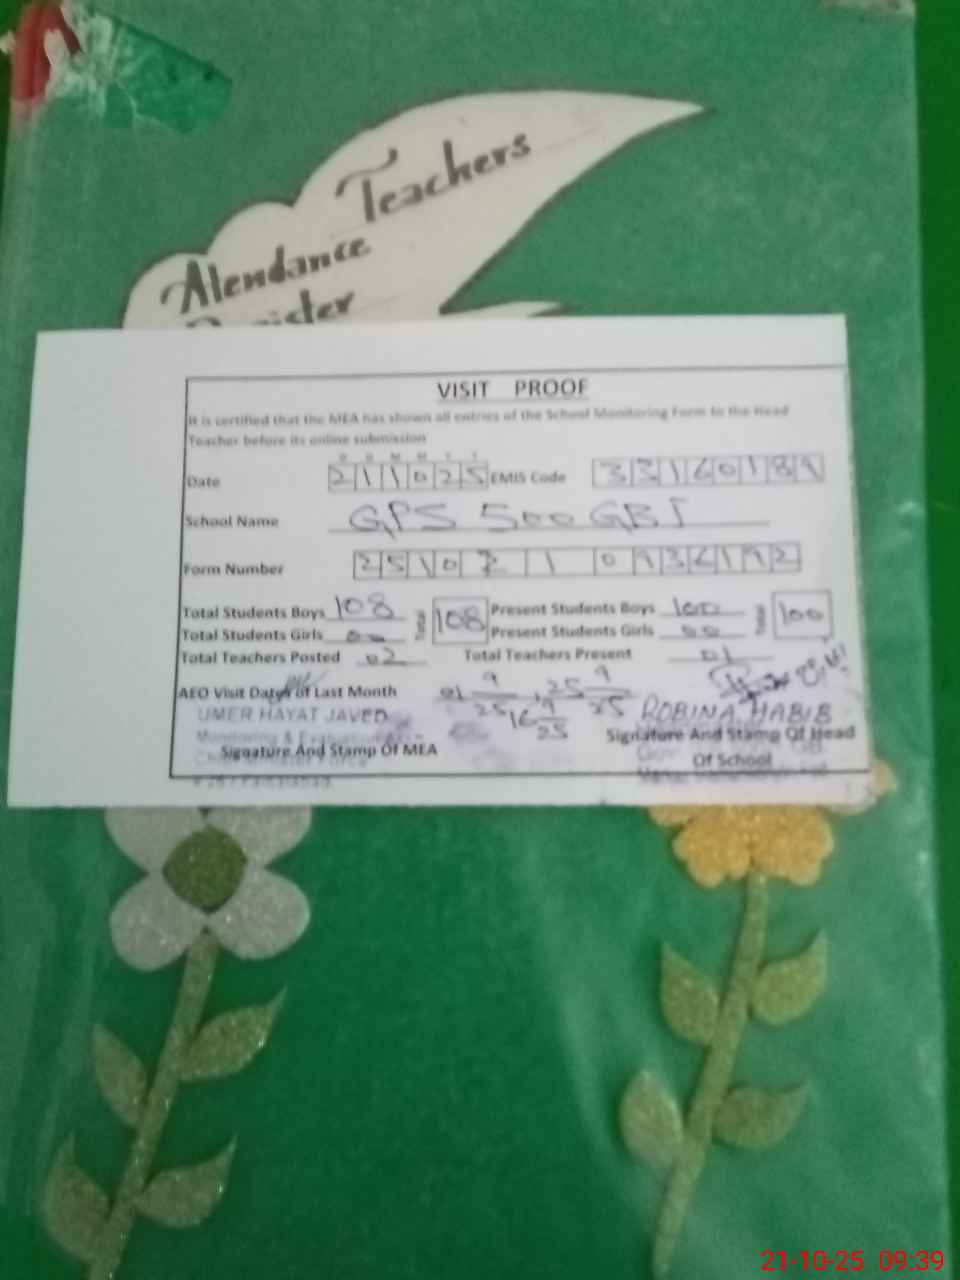 Teachers
Atendance
VISIT PROOF
It is certified that the MEA has shown all entries of the School Monitoring Form to the Head
Teacher before its online submission
D D M M Y Y
Date 211025 EMIS Code 33160189
School Name GPS 500 GB I
Form Number
Total Students Boys 108 Total 108 Present Students Boys 100 Total 100
Total Students Girls 00 Present Students Girls 00
Total Teachers Posted 02 Total Teachers Present 01
AEO Visit Dates of Last Month 01 9/25, 16 9/25, 25 9/25
UMER HAYAT JAVED ROBINA HABIB
Monitoring & Evaluation
Signature And Stamp Of MEA Signature And Stamp Of Head
Of School
21-10-25 09:39